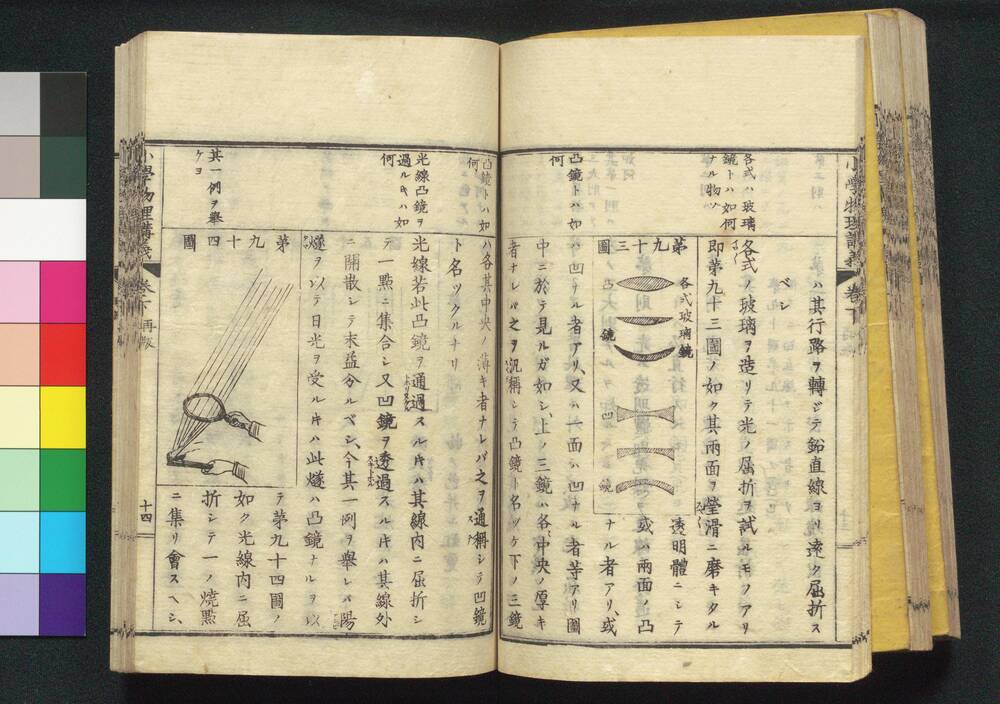 小學物理講義 卷下
各式ハ玻璃
鏡トハ如何
ナル物ゾ
凸鏡トハ如
何
ハ其行路ヲ轉ジテ鉛直線ヨリ遠ク屈折ス
ベシ
各式ノ玻璃ヲ造リテ光ノ屈折ヲ試ルモノアリ
即第九十三圖ノ如ク其兩面ヲ瑩滑ニ磨キタル
透明體ニシテ
第九十三圖
各式玻璃鏡
凸鏡
凹鏡
或ハ兩面ノ凸
ナル者アリ、或
ハ凹ナル者アリ、又ハ一面ハ凹ナル者等アリ圖
中ニ於テ見ルガ如シ、上ノ三鏡ハ各中央ノ厚キ
者ナレバ之ヲ汎稱シテ凸鏡ト名ヅケ下ノ三鏡
凹鏡トハ如
何
光線凸鏡ヲ
過ルキハ如
何
其一例ヲ舉
ケヨ
ハ各其中央ノ薄キ者ナレバ之ヲ通稱シテ凹鏡
ト名ツクルナリ
光線若此凸鏡ヲ通過スルキハ其線內ニ屈折シ
テ一點ニ集合シ又凹鏡ヲ透過スルキハ其線外
ニ開散シテ末益分ルベシ、今其一例ヲ舉レバ陽
燧ヲ以テ日光ヲ受ルキハ此燧ハ凸鏡ナルヲ以
第九十四圖
テ第九十四圖ノ
如ク光線內ニ屈
折シテ一ノ燒點
ニ集リ會スヘシ、
小學物理講義 卷下 再版
十四